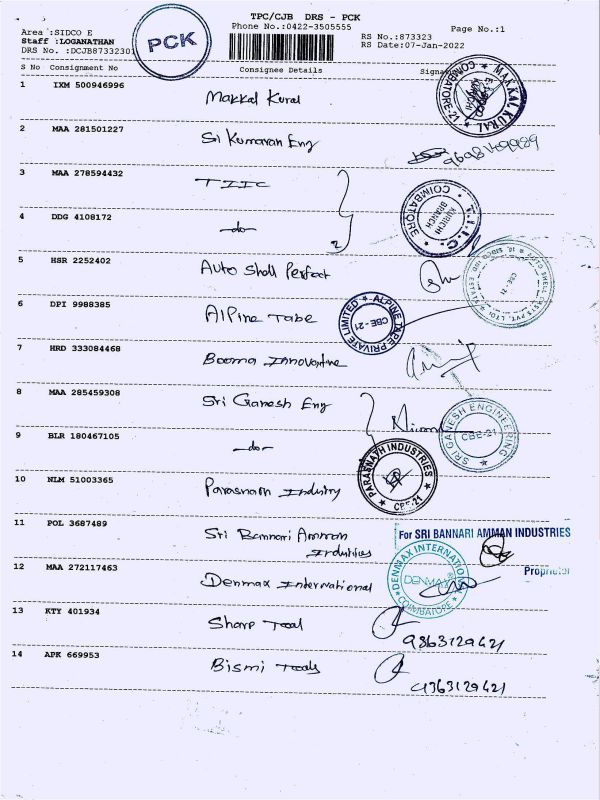 TPC/CJB DRS - PCK
Phone No.:0422-3505555
Page No.:1
Area :SIDCO E
Staff :LOGANATHAN
DRS No. :DCJB87332301
PCK
RS No.:873323
RS Date:07-Jan-2022
S No Consignment No Consignee Details
1 IXM 500946996 Makkal Kural
MAKKAL KURAL COIMBATORE-12
2 MAA 281501227 Sri Kumaran Eng
3 MAA 278594432 TIIC
4 DDG 4108172 -do- 2
T.I.I.C. COIMBATORE KURICHI BRANCH
5 HSR 2252402 Auto Shell Perfect
CBE-21
6 DPI 9988385 Alpine Tabe
ALPINE TAPE PRIVATE LIMITED CBE-21
7 HRD 333084468 Booma Innovative
8 MAA 285459308 Sri Ganesh Eng
SRI GANESH ENGINEERING CBE-21
9 BLR 180467105 -do-
10 NLM 51003365 Parasnath Industry
PARASNATH INDUSTRIES CBE-21
11 POL 3687489 Sri Bannari Amman
Industries
For SRI BANNARI AMMAN INDUSTRIES
Proprietor
12 MAA 272117463 Denmax International
DENMAX INTERNATIONAL DENMAX COIMBATORE
13 KTY 401934 Sharp Tool
9363129421
14 APK 669953 Bismi Tools
9363129421